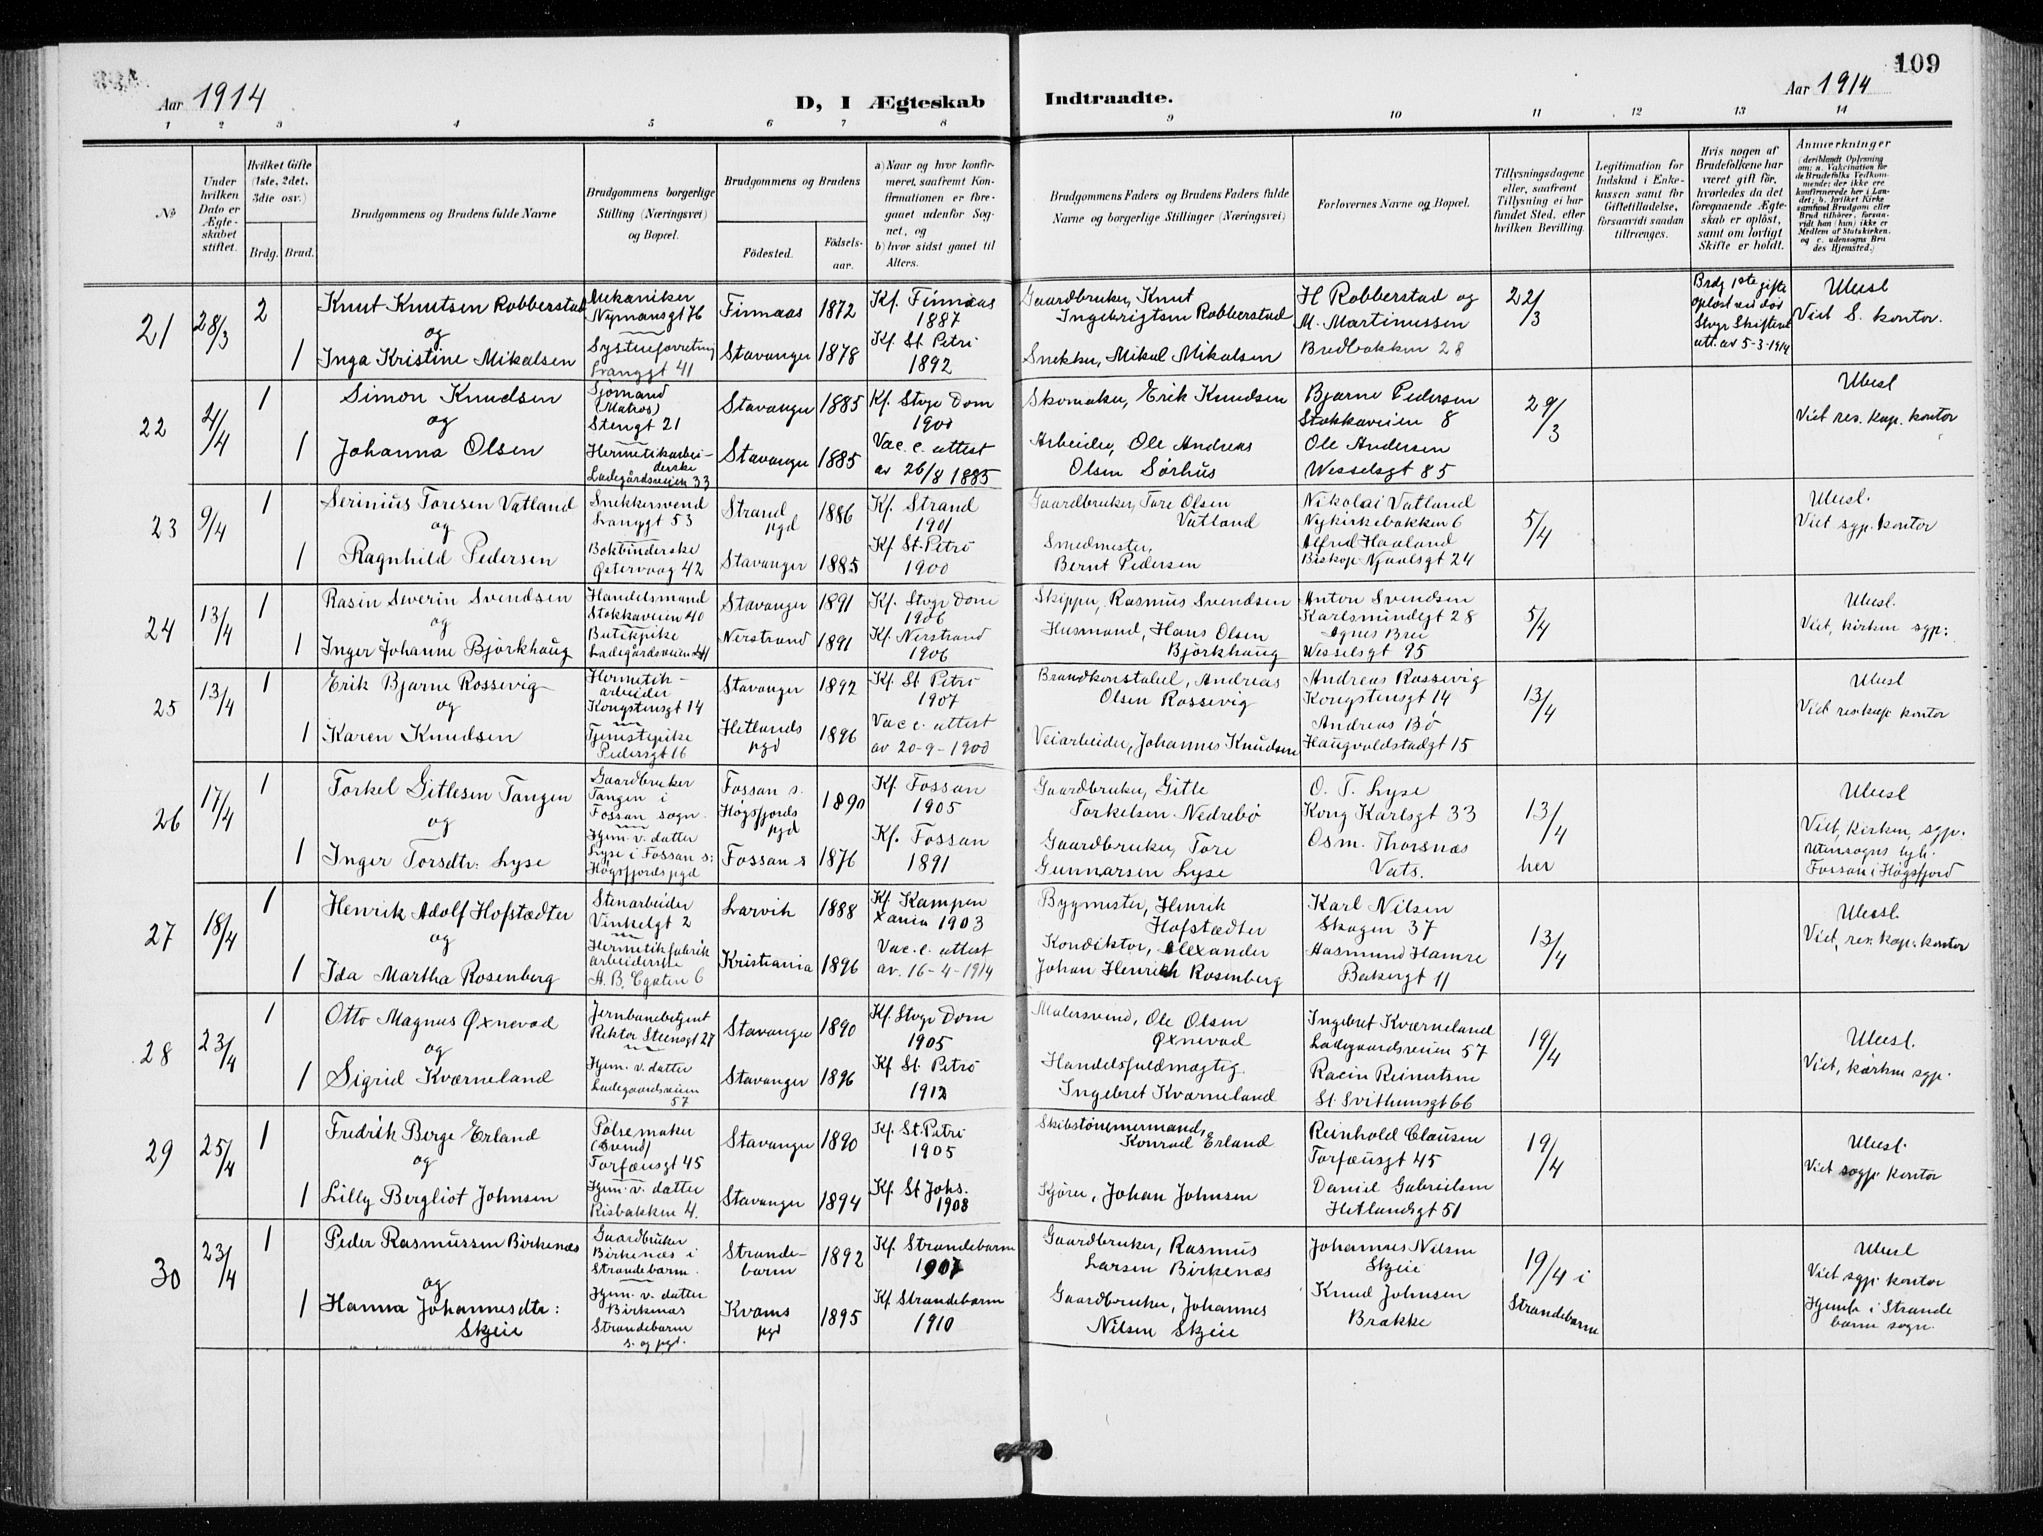 109
Aar 1914
D, I Ægteskab Indtraadte.
Aar 1914
1 2 3 4 5 6 7 8 9 10 11 12 13 14
№
Under hvilken Dato er Ægteskabet stiftet.
Hvilket Gifte (1ste, 2det, 3die osv.)
Brdg. Brud.
Brudgommens og Brudens fulde Navne
Brudgommens borgerlige Stilling (Næringsvei) og Bopæl.
Brudgommens og Brudens
Födested.
Födsels-aar.
a) Naar og hvor konfirmeret, saafremt Konfirmationen er foregaaet udenfor Sognet, og
b) hvor sidst gaaet til Alters.
Brudgommens Faders og Brudens Faders fulde Navne og borgerlige Stillinger (Næringsvei)
Forlovernes Navne og Bopæl.
Tillysningsdagene eller, saafremt Tillysning ei har fundet Sted, efter hvilken Bevilling.
Legitimation for Indskud i Enkekassen samt for Giftetilladelse, forsaavidt saadan tiltrænges.
Hvis nogen af Brudefolkene har været gift för, hvorledes da det foregaaende Ægteskab er oplöst, samt om lovligt Skifte er holdt.
Anmerkninger
(deriblandt Oplysning om: a. Vaccination for de Brudefolks Vedkommende, der ikke ere konfirmerede her i Landet; b. hvilket Kirkesamfund Brudgom eller Brud tilhörer, forsaavidt han (hun) ikke er Medlem af Statskirken. og c. udensogns Brudes Hjemsted.)
21 28/3 2 Knut Knutsen Robberstad
og
1 Inga Kristine Mikalsen
Mekaniker
Nymansgt 76
Systueforretning
Langgt 41
Finnaas 1872
Stavanger 1878
Kf. Finnaas
1887
Kf. St. Petri
1892
Gaardbruker, Knut
Ingebrigtsen Robberstad
Snekker, Mikal Mikalsen
H Robberstad og
M. Martinussen
Bredbakken 28
22/3
Brdg 1ste gifte
oplöst ved död
Stvgr Skifteret
att. av 5-3-1914
Ubesl
Viet S. kontor.
22 4/4 1 Simon Knudsen
og
1 Johanna Olsen
Sjömand
(Matros)
Stengt 21
Hermetikarbei-
derske
Ladegårdsveien 33
Stavanger 1885
Stavanger 1885
Kf. Stvgr Dom
1900
Vac. c. attest
av 26/8 1885
Skomaker, Erik Knudsen
Arbeider, Ole Andreas
Olsen Sörhus
Bjarne Pedersen
Stokkaveien 8
Ole Andersen
Wesselsgt 85
29/3
Ubesl
Viet res. kap. kontor
23 9/4 1 Serinius Toresen Vatland
og
1 Ragnhild Pedersen
Snekkersvend
Langgt 53
Bokbinderske
Östervaag 42
Strand
pgd 1886
Stavanger 1885
Kf. Strand
1901
Kf St. Petri
1900
Gaardbruker, Tore Olsen
Vatland
Smedmester,
Bernt Pedersen
Nikolai Vatland
Nykirkebakken 6
Alfred Haaland
Biskop Njaalsgt 24
5/4
Ubesl.
Viet sgp. kontor
24 13/4 1 Rasin Severin Svendsen
og
1 Inger Johanne Björkhaug
Handelsmand
Stokkaveien 40
Butikpike
Ladegårdsveien 41
Stavanger 1891
Nerstrand 1891
Kf. Stvgr Dom
1906
Kf. Nerstrand
1906
Skipper, Rasmus Svendsen
Husmand, Hans Olsen
Björkhaug
Anton Svendsen
Karlsmindegt 28
Agnes Brei
Wesselsgt 95
5/4
Ubesl.
Viet, kirken sgp:
25 13/4 1 Erik Bjarne Rossevig
og
1 Karen Knudsen
Hermetik-
arbeider
Kongstensgt 14
Tjenestepike
Pedersgt 16
Stavanger 1892
Hetlands
pgd 1896
Kf. St Petri
1907
Vac c. attest
av 20-9-1900
Brandkonstabel, Andreas
Olsen Rossevig
Veiarbeider, Johannes Knudsen
Andreas Rossevig
Kongstensgt 14
Andreas Bö
Haugvaldstadgt 15
13/4
Ubesl
Viet res. kap kontor
26 17/4 1 Torkel Gitlesen Tangen
og
1 Inger Torsdtr: Lyse
Gaardbruker
Tangen i
Fossan sogn.
Hjem. v. datter
Lyse i Fossan s:
Högsfjords pgd
Fossan s.
Högsfjords
pgd 1890
Fossan s 1876
Kf. Fossan
1905
Kf. Fossan
1891
Gaardbruker, Gitle
Torkelsen Nedrebö
Gaardbruker, Tore
Gunnarsen Lyse
O. T. Lyse
Kong Karlsgt 33
Osm. Thorsnæs
Vats.
13/4
her
Ubesl
Viet, kirken, sgp.
Utensogns lyst.
Fossan i Högsfjord
27 18/4 1 Henrik Adolf Hofstædter
og
1 Ida Martha Rosenberg
Stenarbeider
Vinkelgt 2
Hermetikfabrik
arbeiderske
A. B. Cgaten 6
Larvik 1888
Kristiania 1896
Kf Kampen
Xania 1903
Vac. c. attest
av. 16-4-1914
Bygmester, Henrik
Hofstædter
Konditor, Alexander
Johan Henrich Rosenberg
Karl Nilsen
Skagen 37
Aasmund Hamre
Bakergt 11
13/4
Ubesl.
Viet, res. kap. kontor
28 23/4 1 Otto Magnus Öxnevad
og
1 Sigrid Kværneland
Jernbanebetjent
Rektor Steensgt 27
Hjem. v. datter
Ladegaardsveien
57
Stavanger 1890
Stavanger 1896
Kf. Stvgr Dom
1905
Kf St. Petri
1912
Malersvend, Ole Olsen
Öxnevad
Handelsfuldmægtig.
Ingebret Kværneland
Ingebret Kværneland
Ladegaardsveien 57
Racin Reinertsen
St. Svithunsgt 66
19/4
Ubesl.
Viet, kirken sgp.
29 25/4 1 Fredrik Berge Erland
og
1 Lilly Bergliot Johnsen
Pölsemaker
(Svend)
Torfæusgt 45
Hjem. v. datter
Risbakken 4.
Stavanger 1890
Stavanger 1894
Kf. St. Petri
1905
Kf. St Johs.
1908
Skibstönnermand,
Konrad Erland
Kjörer, Johan Johnsen
Reinhold Clausen
Torfæusgt 45
Daniel Gabrielsen
Hetlandsgt 51
19/4
Ubesl.
Viet sogp. kontor
30 23/4 1 Peder Rasmussen Birkenæs
og
1 Hanna Johannesdtr:
Skjeie
Gaardbruker
Birkenæs i
Strandebarm.
Hjem. v. datter
Birkenæs
Strandebarm
s. og pgd.
Strande-
barm 1892
Kvams
pgd 1895
Kf. Strandebarm
1907
Kf Strandebarm
1910
Gaardbruker, Rasmus
Larsen Birkenæs
Gaardbruker, Johannes
Nilsen Skjeie
Johannes Nilsen
Skjeie
Knud Johnsen
Brække
19/4 i
Strandebarm
Ubesl
Viet sgp. kontor
Hjemh. i Strande
barm sogn.